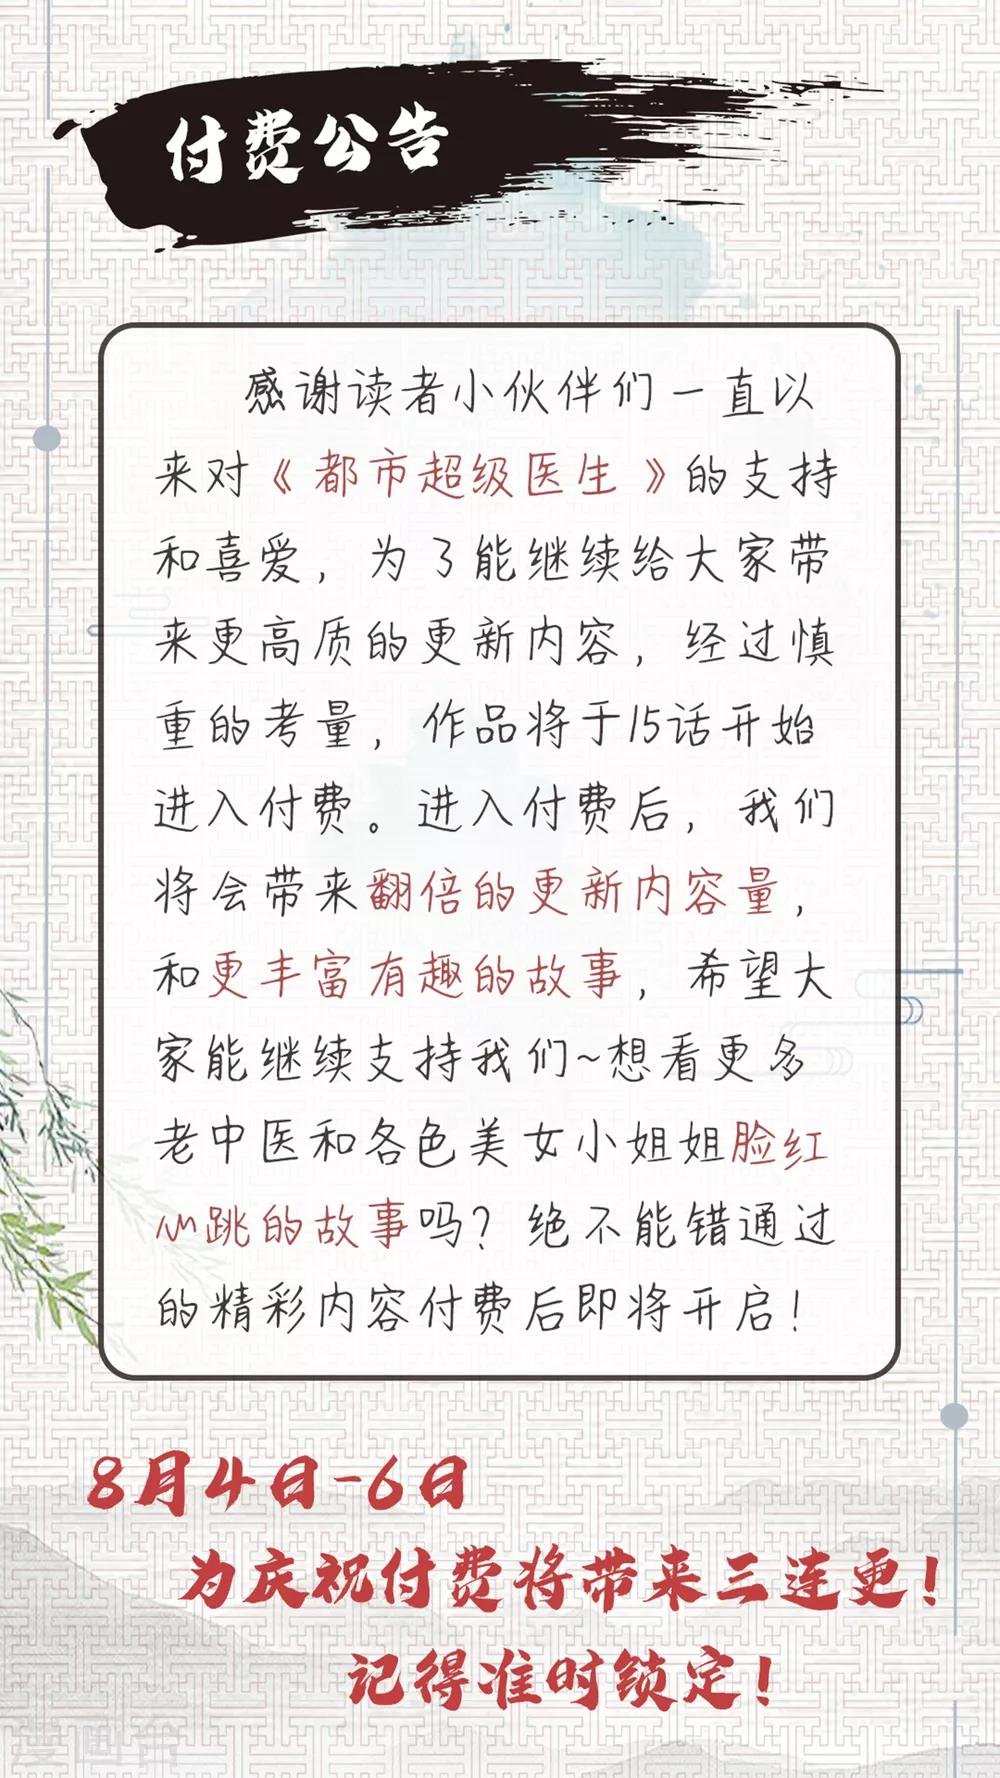 付费公告
感谢读者小伙伴们一直以
来对《都市超级医生》的支持
和喜爱，为了能继续给大家带
来更高质的更新内容，经过慎
重的考量，作品将于15话开始
进入付费。进入付费后，我们
将会带来翻倍的更新内容量，
和更丰富有趣的故事，希望大
家能继续支持我们~想看更多
老中医和各色美女小姐姐脸红
心跳的故事吗？绝不能错通过
的精彩内容付费后即将开启！
8月4日-6日
为庆祝付费将带来三连更！
记得准时锁定！
漫画台